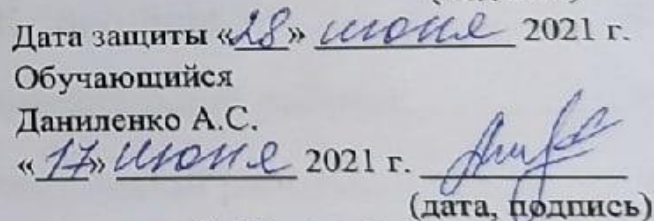 Дата защиты «28» июня 2021 г.
Обучающийся
Даниленко А.С.
«17» июня 2021 г.
(дата, подпись)